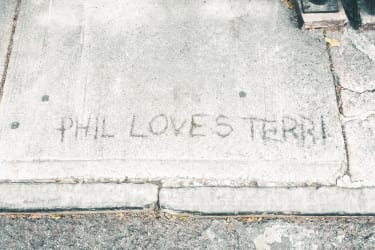 PHIL LOVES TERRI